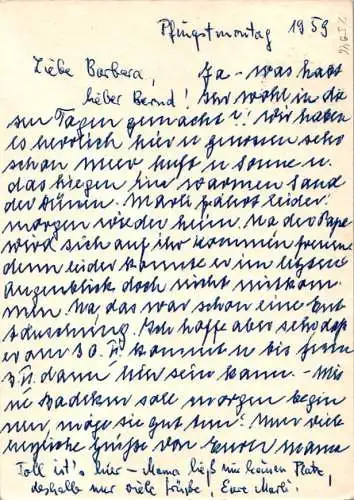 Pfingstmontag 1959
Liebe Barbara, Ja - was habt
lieber Bernd! Ihr wohl in die
sen Tagen gemacht?! Wir haben
es herrlich hier u. genossen sehr
schon Meer luft u Sonne u.
das liegen im warmen Sand
der Dünen. Marli fährt leider
morgen wieder heim. Na der Papa
wird sich auf ihr kommen freuen
denn leider konnte er im letzten
Augenblick doch nicht mitkom
men. Na das war schon eine Ent
täuschung. Ich hoffe aber sehr daß
er am 30. kommt u bis zum
dann hier sein kann. - Mei
ne Badekur soll morgen begin
nen, möge sie gut tun! Nur viele
herzliche Grüße von Eurer Mama
Toll ist's hier - Mama ließ mir keinen Platz,
deshalb nur viele Grüße, Eure Marli.